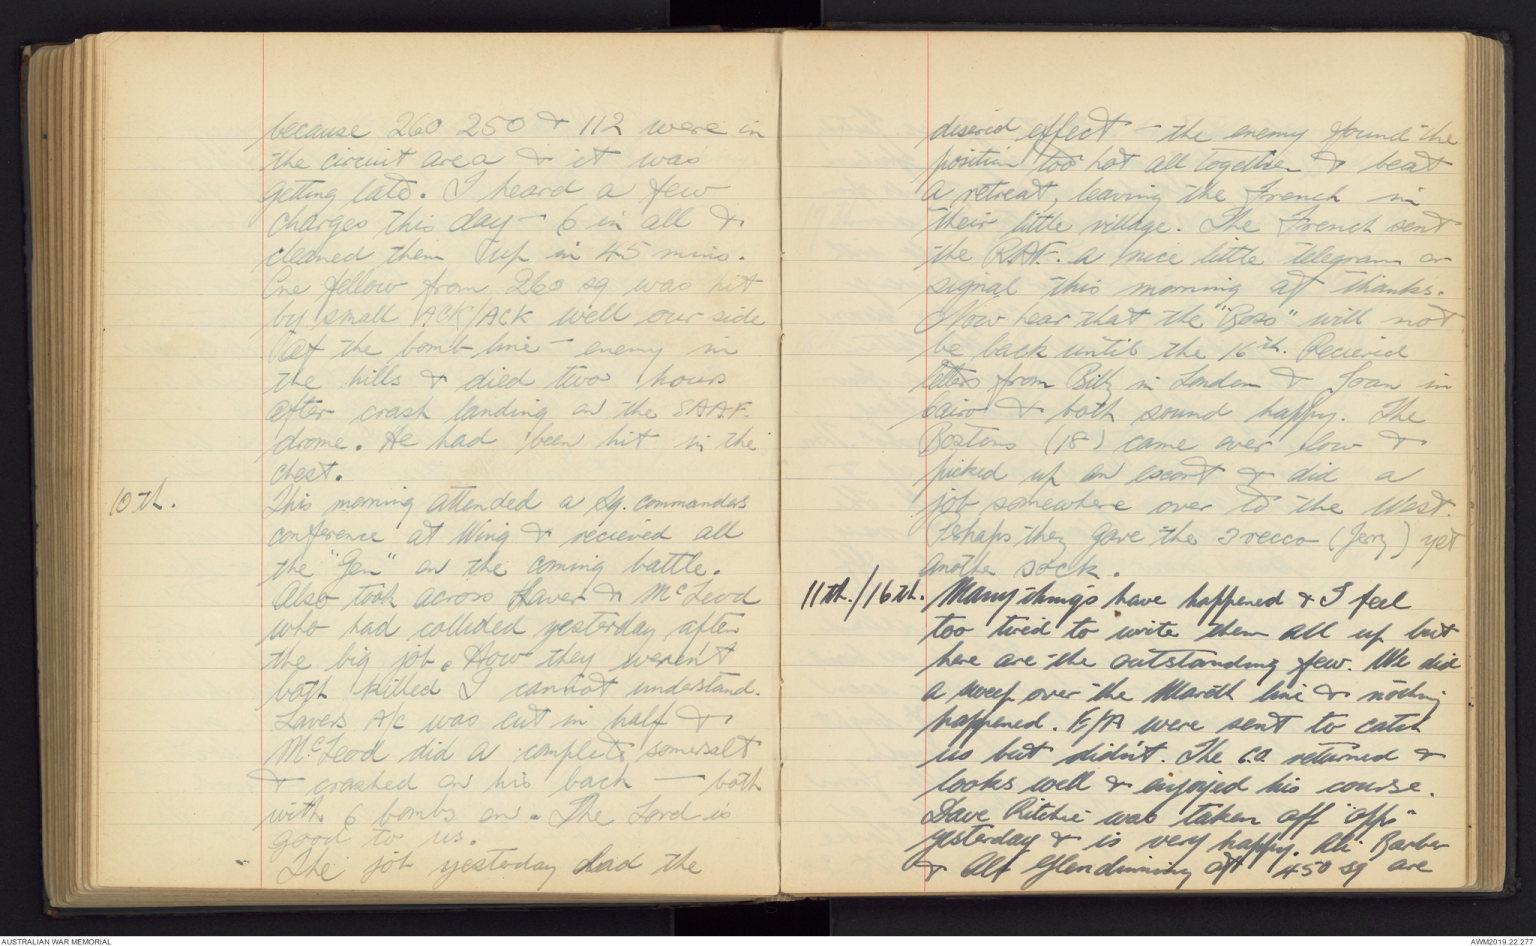 because 260 250 & 112 were in
the circuit area & it was
getting late. I heard a few
charges this day - 6 in all &
cleaned them up in 45 mins.
One fellow from 260 sq was hit
by small ACK/ACK well our side
of the bomb line - enemy in
the hills & died two hours
after crash landing on the SAAF.
drome. He had been hit in the
chest.
10th.
This morning attended a Sq. commanders
conference at Wing & recieved all
the "Gen" on the coming battle.
Also took across Laver & McLeod
who had collided yesterday after
the big job. How they weren't
both killed I cannot understand.
Lavers A/c was cut in half &
McLeod did a complete somersalt
& crashed on his back - both
with 6 bombs on. The Lord is
good to us.
The job yesterday had the
desered effect - the enemy found the
position too hot all together & beat
a retreat, leaving the French in
their little village. The French sent
the RAF. a nice little telegram or
signal this morning of thanks.
Now hear that the "Boss" will not
be back until the 16th. Recieved
letters from Billy in London & Joan in
Cairo & both sound happy. The
Bostons (18) came over low &
picked up an escort & did a
job somewhere over to the West.
Perhaps they gave the recco (Jerry) yet
another sock.
11th./16th.
Many things have happened & I feel
too tired to write them all up but
here are the outstanding few. We did
a sweep over the Mareth line & nothing
happened. E/A were sent to catch
us but didn't. The C.O. returned &
looks well & enjoyed his course.
Dave Ritchie was taken off "ops"
yesterday & is very happy. Ali Barber
& Alf Glendinning of 450 sq are
AUSTRALIAN WAR MEMORIAL
AWM2019.22.277